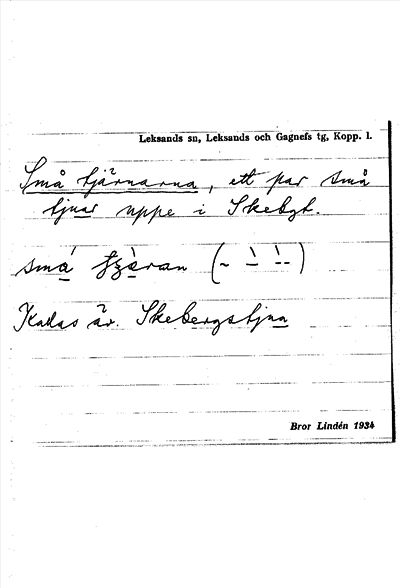 Leksands sn, Leksands och Gagnefs tg, Kopp. l.
Små tjärnarna, ett par små
tjnar uppe i Skebgt.
små tʒèran (~ ` `--)
Kallas äv. Skebergstjna
Bror Lindén 1934